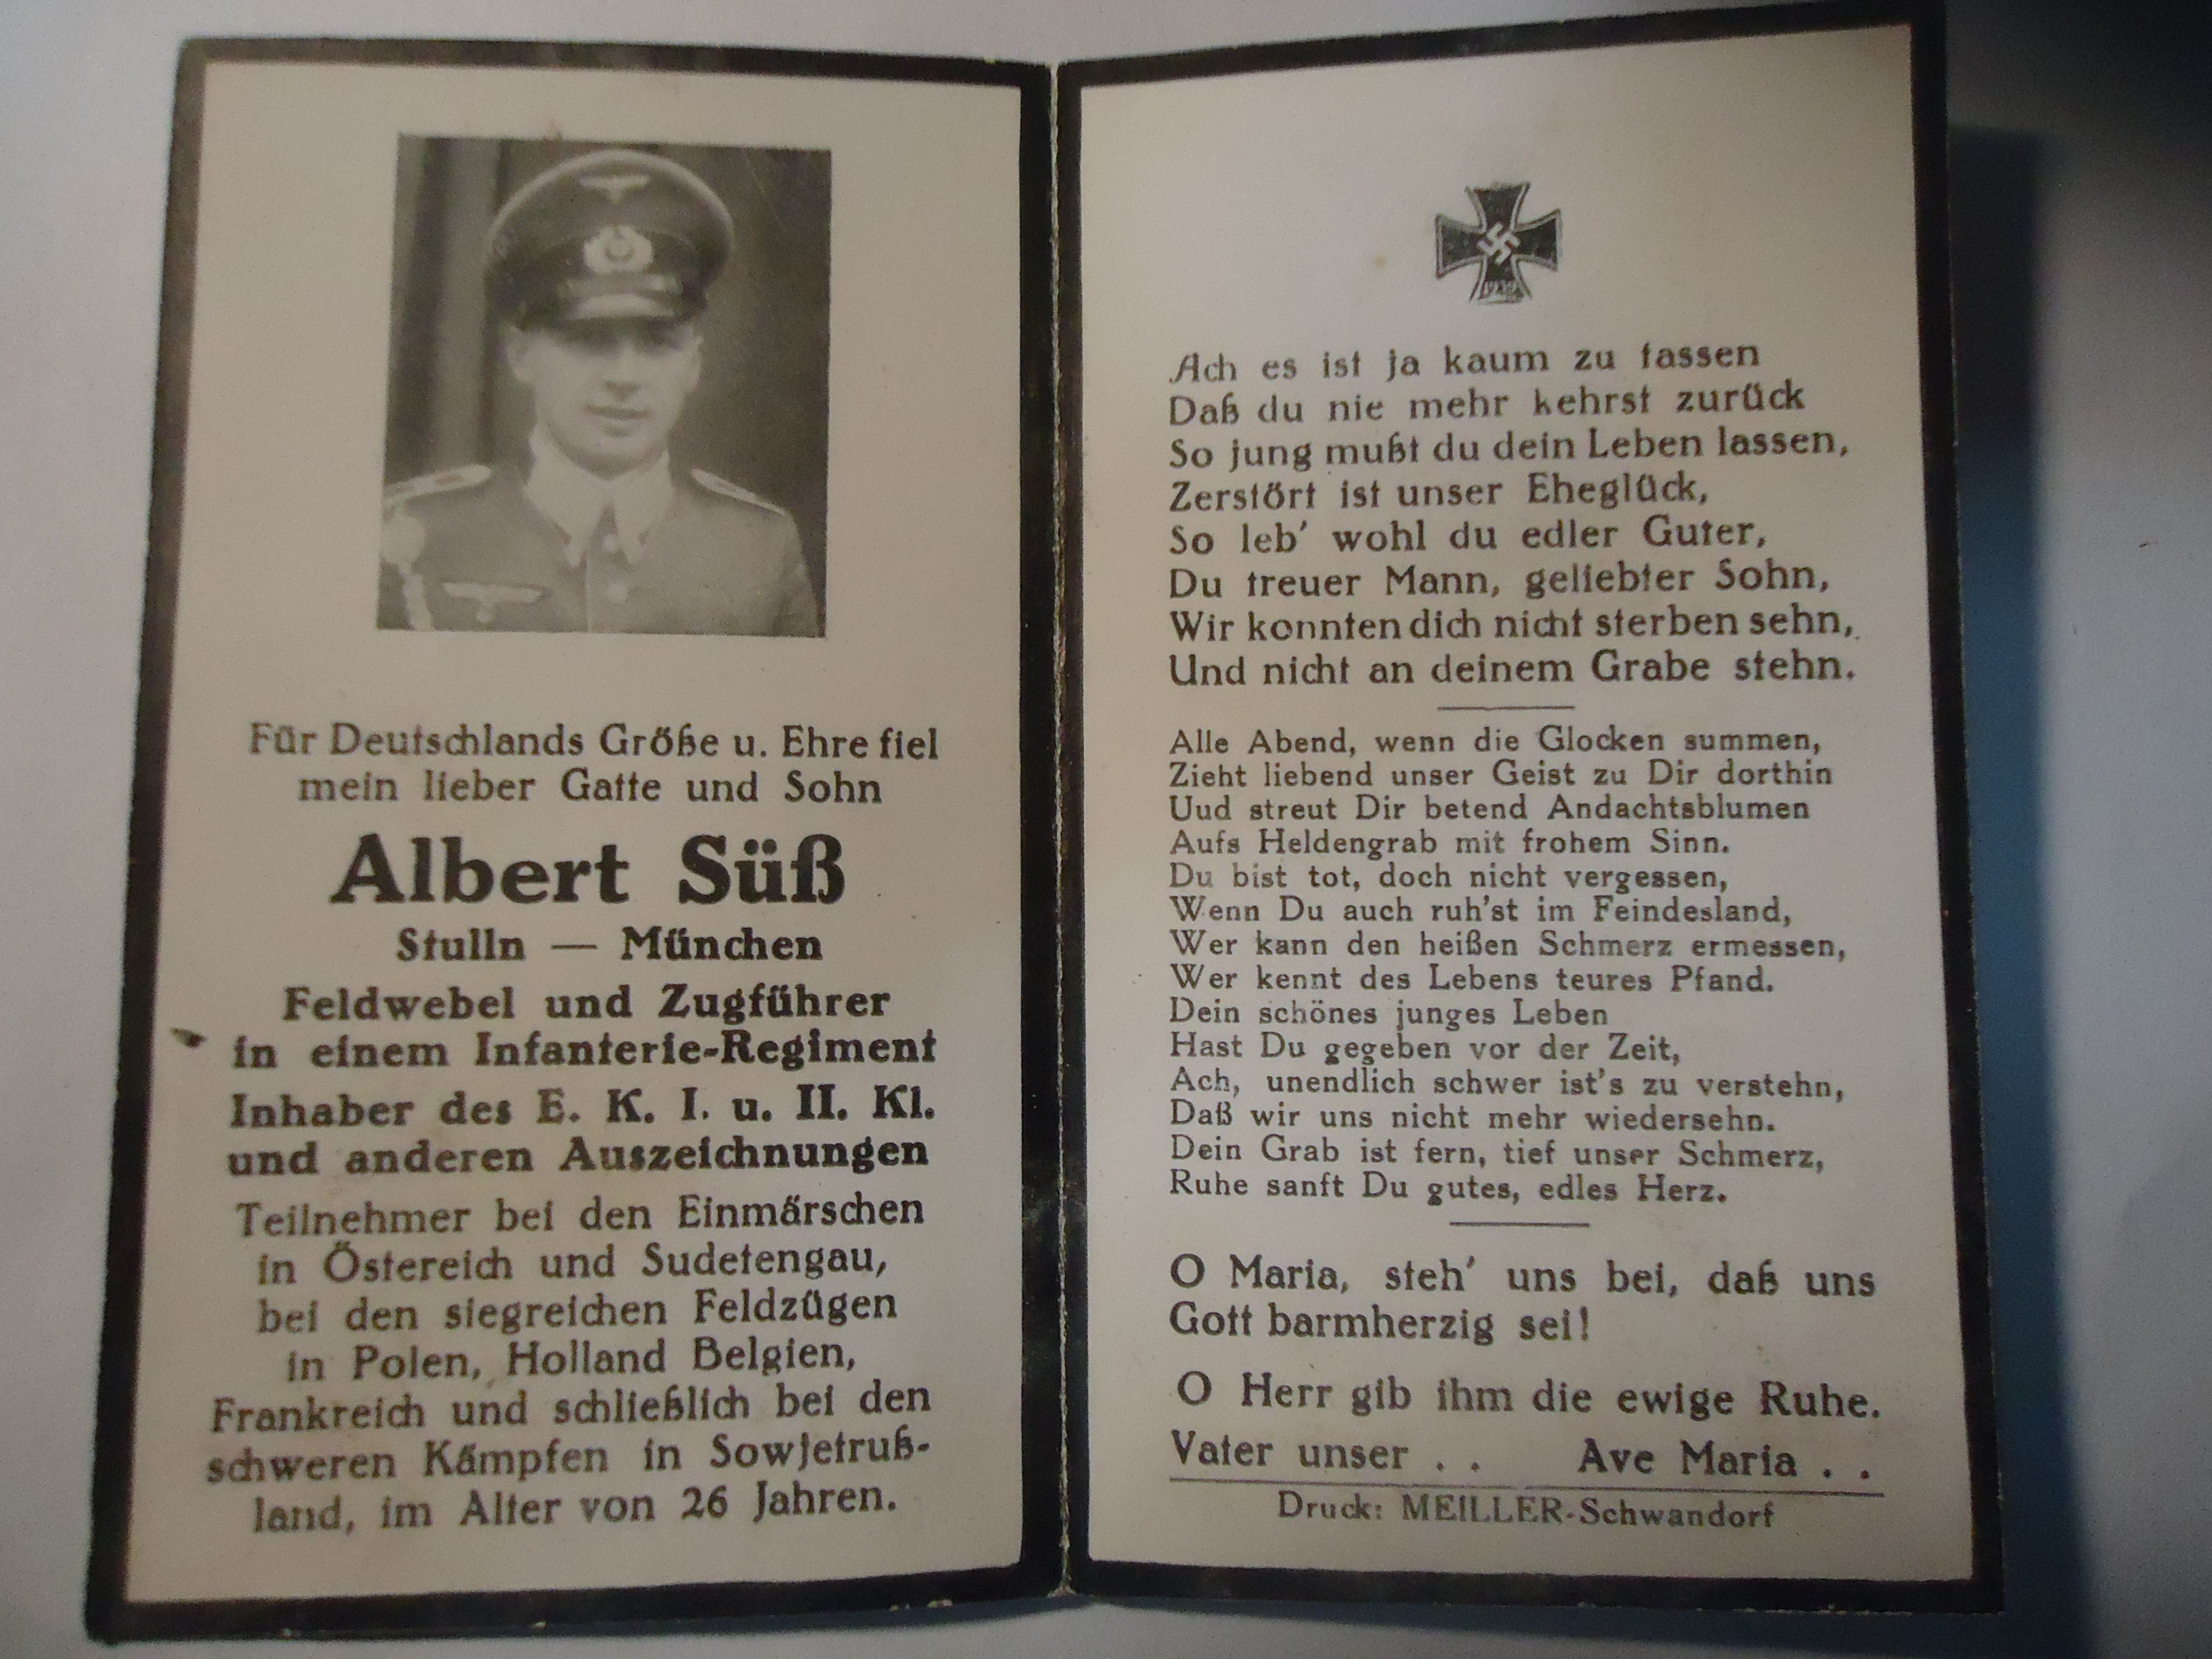 Für Deutschlands Größe u. Ehre fiel
mein lieber Gatte und Sohn
Albert Süß
Stulln — München
Feldwebel und Zugführer
in einem Infanterie-Regiment
Inhaber des E. K. I. u. II. Kl.
und anderen Auszeichnungen
Teilnehmer bei den Einmärschen
in Östereich und Sudetengau,
bei den siegreichen Feldzügen
in Polen, Holland Belgien,
Frankreich und schließlich bei den
schweren Kämpfen in Sowjetruß-
land, im Alter von 26 Jahren.
1939
Ach es ist ja kaum zu fassen
Daß du nie mehr kehrst zurück
So jung mußt du dein Leben lassen,
Zerstört ist unser Eheglück,
So leb' wohl du edler Guter,
Du treuer Mann, geliebter Sohn,
Wir konnten dich nicht sterben sehn,
Und nicht an deinem Grabe stehn.
Alle Abend, wenn die Glocken summen,
Zieht liebend unser Geist zu Dir dorthin
Uud streut Dir betend Andachtsblumen
Aufs Heldengrab mit frohem Sinn.
Du bist tot, doch nicht vergessen,
Wenn Du auch ruh'st im Feindesland,
Wer kann den heißen Schmerz ermessen,
Wer kennt des Lebens teures Pfand.
Dein schönes junges Leben
Hast Du gegeben vor der Zeit,
Ach, unendlich schwer ist's zu verstehn,
Daß wir uns nicht mehr wiedersehn.
Dein Grab ist fern, tief unser Schmerz,
Ruhe sanft Du gutes, edles Herz.
O Maria, steh' uns bei, daß uns
Gott barmherzig sei!
O Herr gib ihm die ewige Ruhe.
Vater unser . . Ave Maria . .
Druck: MEILLER-Schwandorf